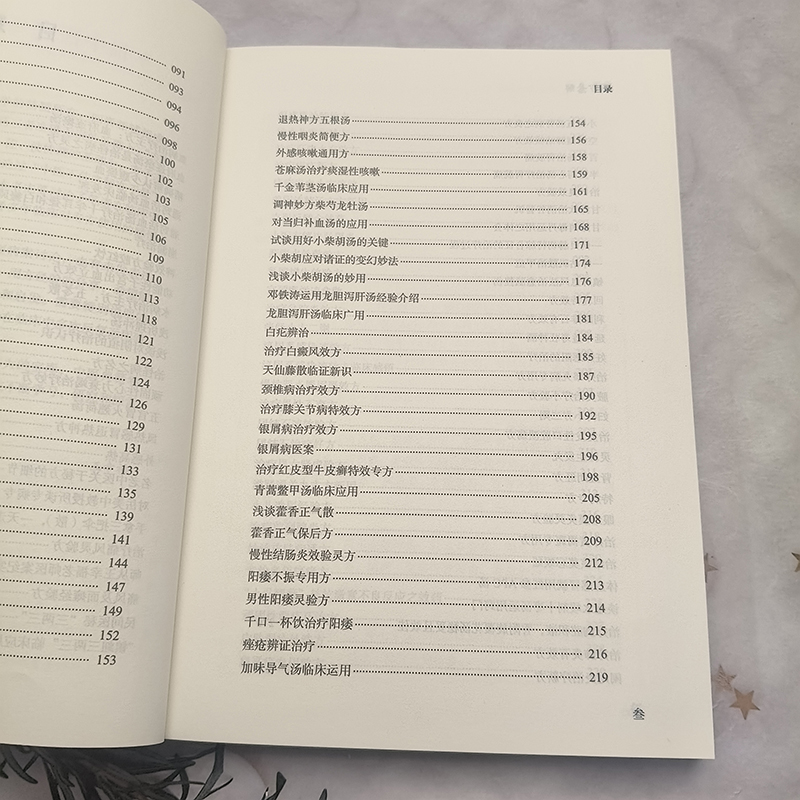 091
093
094
096
098
100
102
103
105
106
109
110
113
118
121
122
124
126
129
131
133
135
139
141
144
147
149
152
153
目录
退热神方五根汤 154
慢性咽炎简便方 156
外感咳嗽通用方 158
苍麻汤治疗痰湿性咳嗽 159
千金苇茎汤临床应用 161
调神妙方柴芍龙牡汤 165
对当归补血汤的应用 168
试谈用好小柴胡汤的关键 171
小柴胡应对诸证的变幻妙法 174
浅谈小柴胡汤的妙用 176
邓铁涛运用龙胆泻肝汤经验介绍 177
龙胆泻肝汤临床广用 181
白疕辨治 184
治疗白癜风效方 185
天仙藤散临证新识 187
颈椎病治疗效方 190
治疗膝关节病特效方 192
银屑病治疗效方 195
银屑病医案 196
治疗红皮型牛皮癣特效专方 198
青蒿鳖甲汤临床应用 205
浅谈藿香正气散 208
藿香正气保后方 209
慢性结肠炎效验灵方 212
阳痿不振专用方 213
男性阳痿灵验方 214
千口一杯饮治疗阳痿 215
痤疮辨证治疗 216
加味导气汤临床运用 219
叁